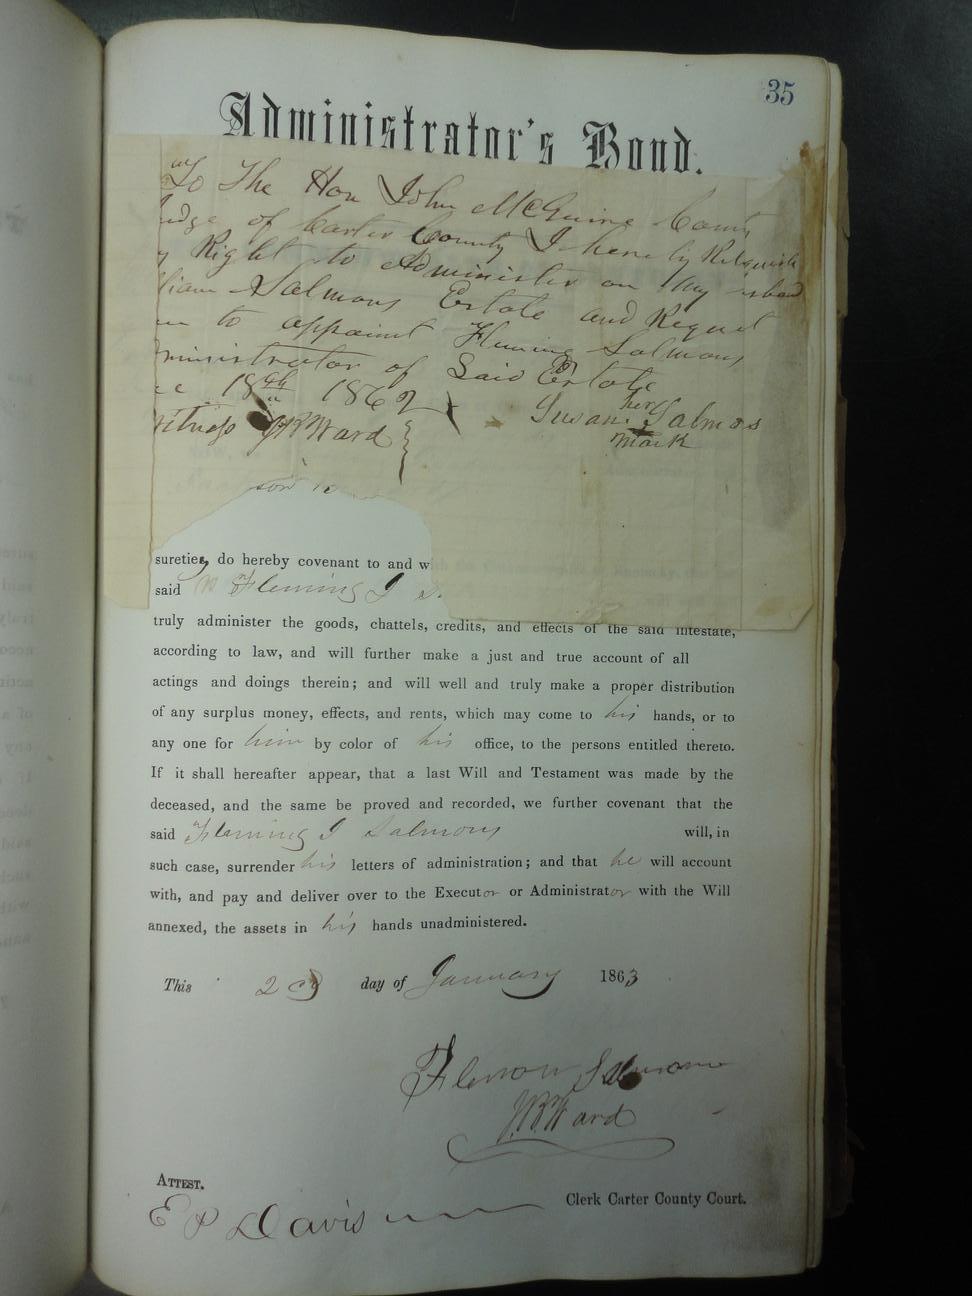 35
Administrator's Bond.
To The Hon John McGuire County
udge of Carter County I hereby Relinquish
y Right to Administer on My usband
liam Salmons Estate and Request
to appoint Fleming Salmons
ministrator of Said Estate
18th 1862
Susan her Salmos
itness JRWard
mark
sureties, do hereby covenant to and w
said Fleming J S
truly administer the goods, chattels, credits, and effects of the said intestate,
according to law, and will further make a just and true account of all
actings and doings therein; and will well and truly make a proper distribution
of any surplus money, effects, and rents, which may come to his hands, or to
any one for him by color of his office, to the persons entitled thereto.
If it shall hereafter appear, that a last Will and Testament was made by the
deceased, and the same be proved and recorded, we further covenant that the
said Fleming J Salmons will, in
such case, surrender his letters of administration; and that he will account
with, and pay and deliver over to the Executor or Administrator with the Will
annexed, the assets in his hands unadministered.
This day of January 1863
Salmons
Ward
ATTEST.
E P Davis Clerk Carter County Court.